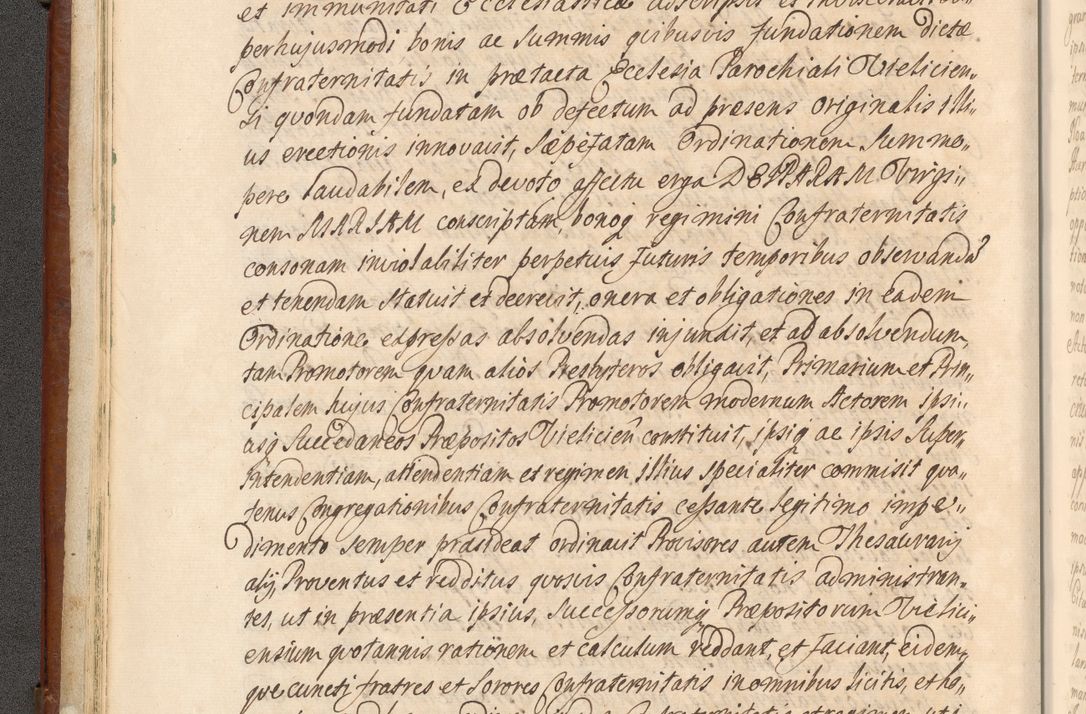 et immunitati Ecclesiasticæ adscripsit et
perhujusmodi bonis ac summis quibusvis fundationem dictæ
Confraternitatis in prætacta Ecclesia Parochiali Vielicien„
si quondam fundatam ob defectum ad præsens originalis illi„
us erectionis innovavit, sæpefatam Ordinationem summo„
pere laudabilem, ex devoto affectu erga DEIPARAM Virgi„
nem MARIAM conscriptam, bonoq regimini Confraternitatis
consonam inviolabiliter perpetuis futuris temporibus observandã
et tenendam statuit et decrevit, onera et obligationes in eadem
Ordinatione expressas absolvendas injunxit, et ad absolvendum,
tam Promotorem quam alios Presbyteros obligavit, Primarium et Prin„
cipalem hujus Confraternitatis Promotorem modernum Actorem ipsi„
usq Succedaneos Præpositos Vielicień constituit, ipsiq ac ipsis Super„
intendentiam, attendentiam et regimen illius specialiter commisit qua„
tenus Congregationibus Confraternitatis cessante legitimo impe„
dimento semper præsideat ordinavit Provisores autem Thesaurarij
alij, Proventus et redditus quosvis Confraternitatis administran„
tes, ut in præsentia ipsius, Successorumq Præpositorum Vielici„
ensium quotannis rationem et calculum reddant, et faciant, eidem„
que cuncti fratres et sorores Confraternitatis in omnibus licitis, et ho„